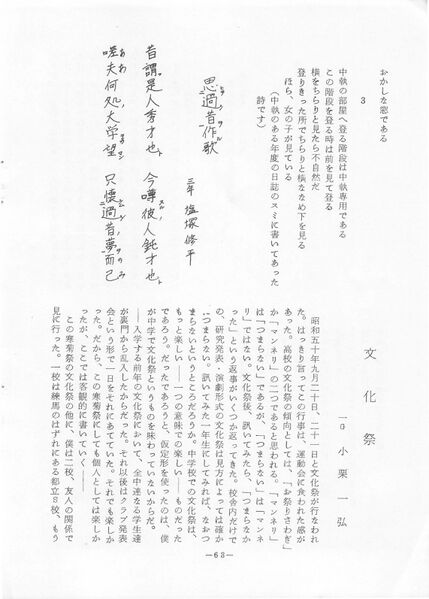 おかしな窓である
3
中執の部屋へ登る階段は中執専用である
この階段を登る時は前を見て登る
横をちらりと見たら不自然だ
登りきった所でちらりと横ななめ下を見る
ほら、女の子が見ている
（中執のある年度の日誌のスミに書いてあった
詩です）
思過昔作歌
三年 塩塚修平
昔謂是人秀才也 今嘩彼人鈍才也
嗟夫何処大学望 只懐過昔夢而已
文化祭
一G 小栗一弘
昭和五十年九月二十日、二十一日と文化祭が行なわれ
た。はっきり言ってこの行事は、運動会に食われた感が
あった。高校の文化祭の傾向としては、「お祭りさわぎ」
か「マンネリ」の二つであると思われる。「マンネリ」
は「つまらない」であるが、「つまらない」は「マンネ
リ」ではない。文化祭後、訊いてみたら、「つまらなか
った」という返事がいくつか返ってきた。校舎内だけで
の、研究発表・演劇形式の文化祭は見方によっては確か
につまらない。訊いてみた一年生にしてみれば、なおつ
まらないというところだろうか。中学校での文化祭は、
もっと楽しい――一つの意味での楽しい――ものだった
であろう。だったであろうと、仮定形を使ったのは、僕
が中学で文化祭というものを味わっていないからだ。
――入学する前年の文化祭において、全中連なる学生達
が裏門から乱入したからだった。それ以後はクラブ発表
会という形で一日をそれにあてていた。それでも楽しか
った。だから、この寒菊祭にしても個人としては楽しか
ったが、ここでは客観的に書いていく――
この寒菊祭の文化祭の他に、僕は二校、友人の関係で
見に行った。一校は練馬のはずれにある都立S校、もう
―63―